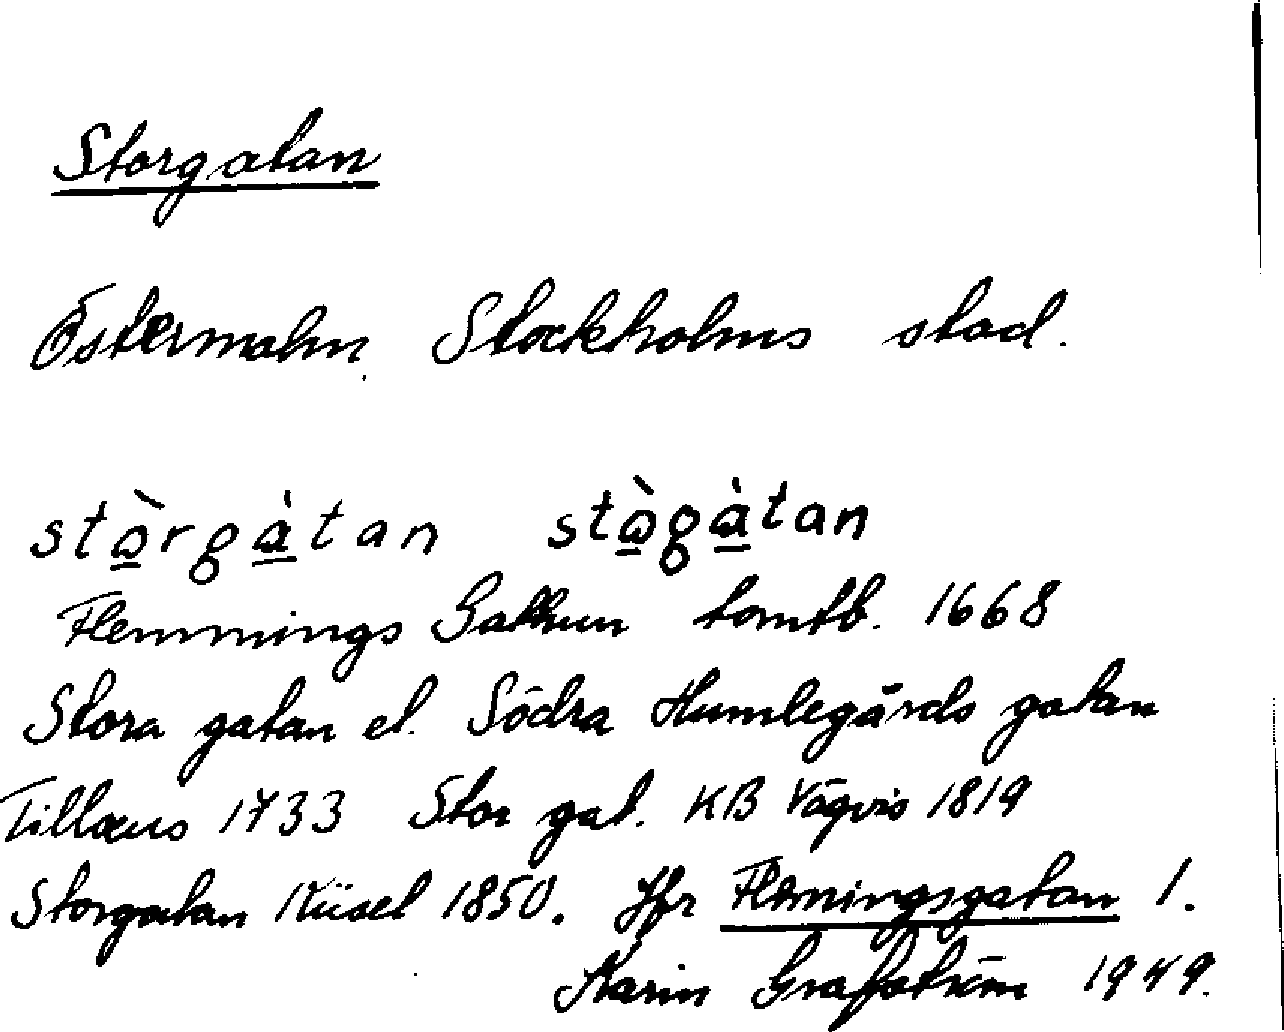 Storgatan
Östermalm. Stockholms stad.
stòrgàtan stògàtan
Flemmings Gathun tomtb. 1668
Stora gatan el. Södra Humlegårds gatan
Tillæus 1733 Stor gat. KB Vägvis 1819
Storgatan Küsel 1850. Jfr Flemingsgatan 1.
Karin Grafström 1949.